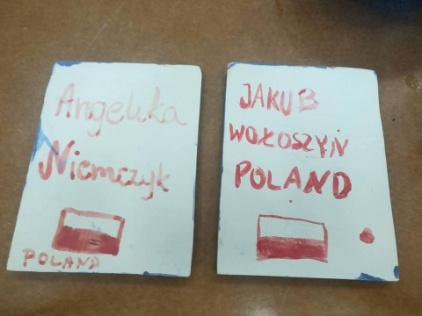 Angelika
Niemczyk
POLAND
JAKUB
WOŁOSZYŃ
POLAND